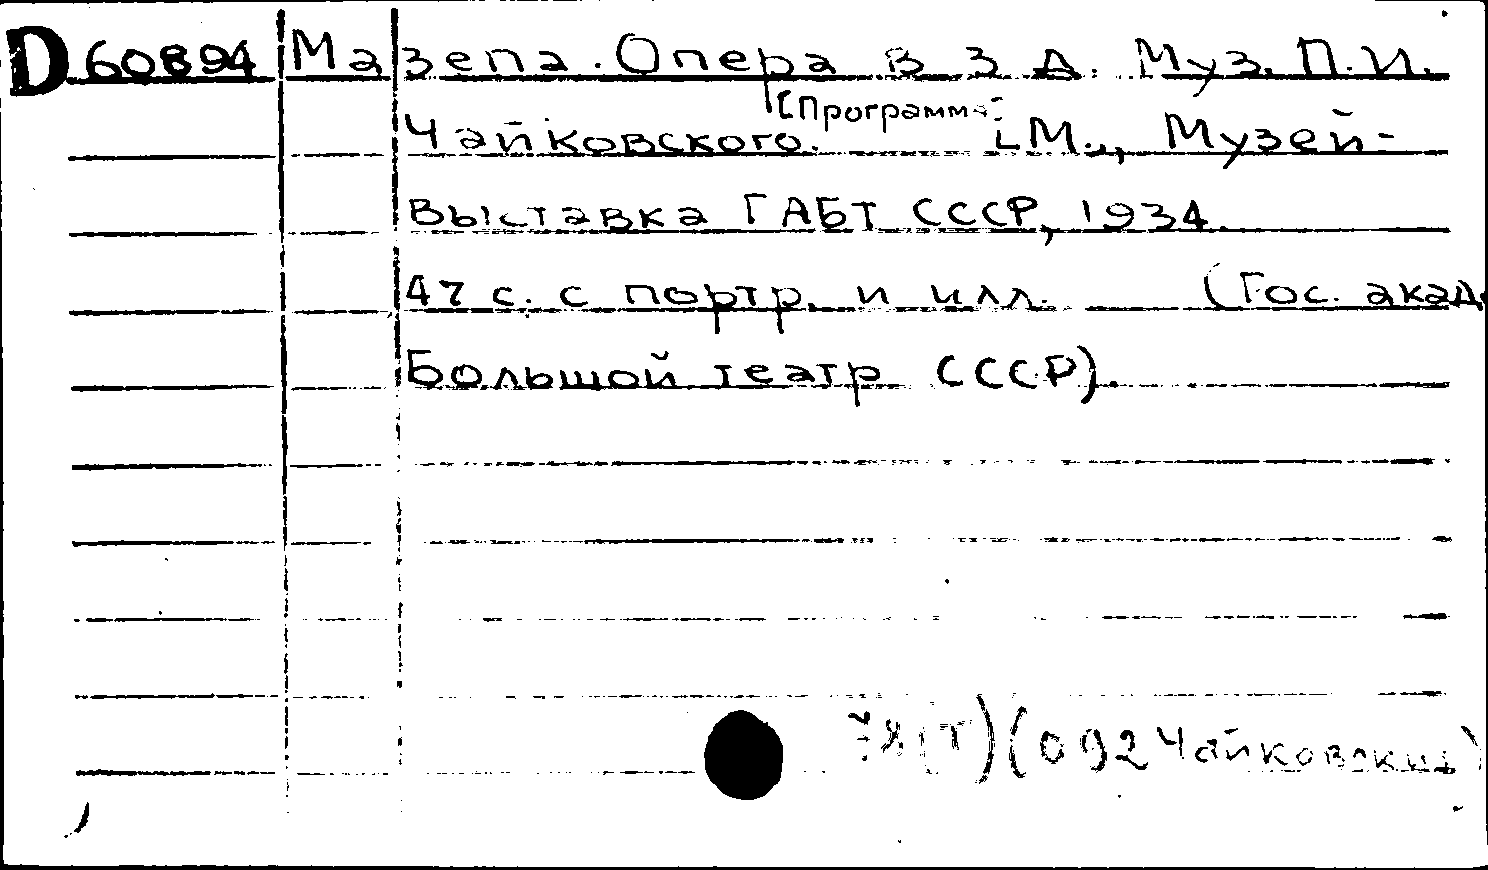 D 60894 Мазепа. Опера в 3 д. Муз. П.И.
Чайковского. [Программа] [М.], Музей-
выставка ГАБТ СССР, 1934.
47 с. с портр. и илл. (Гос. акад.
Большой театр СССР).
(092 Чайковский)